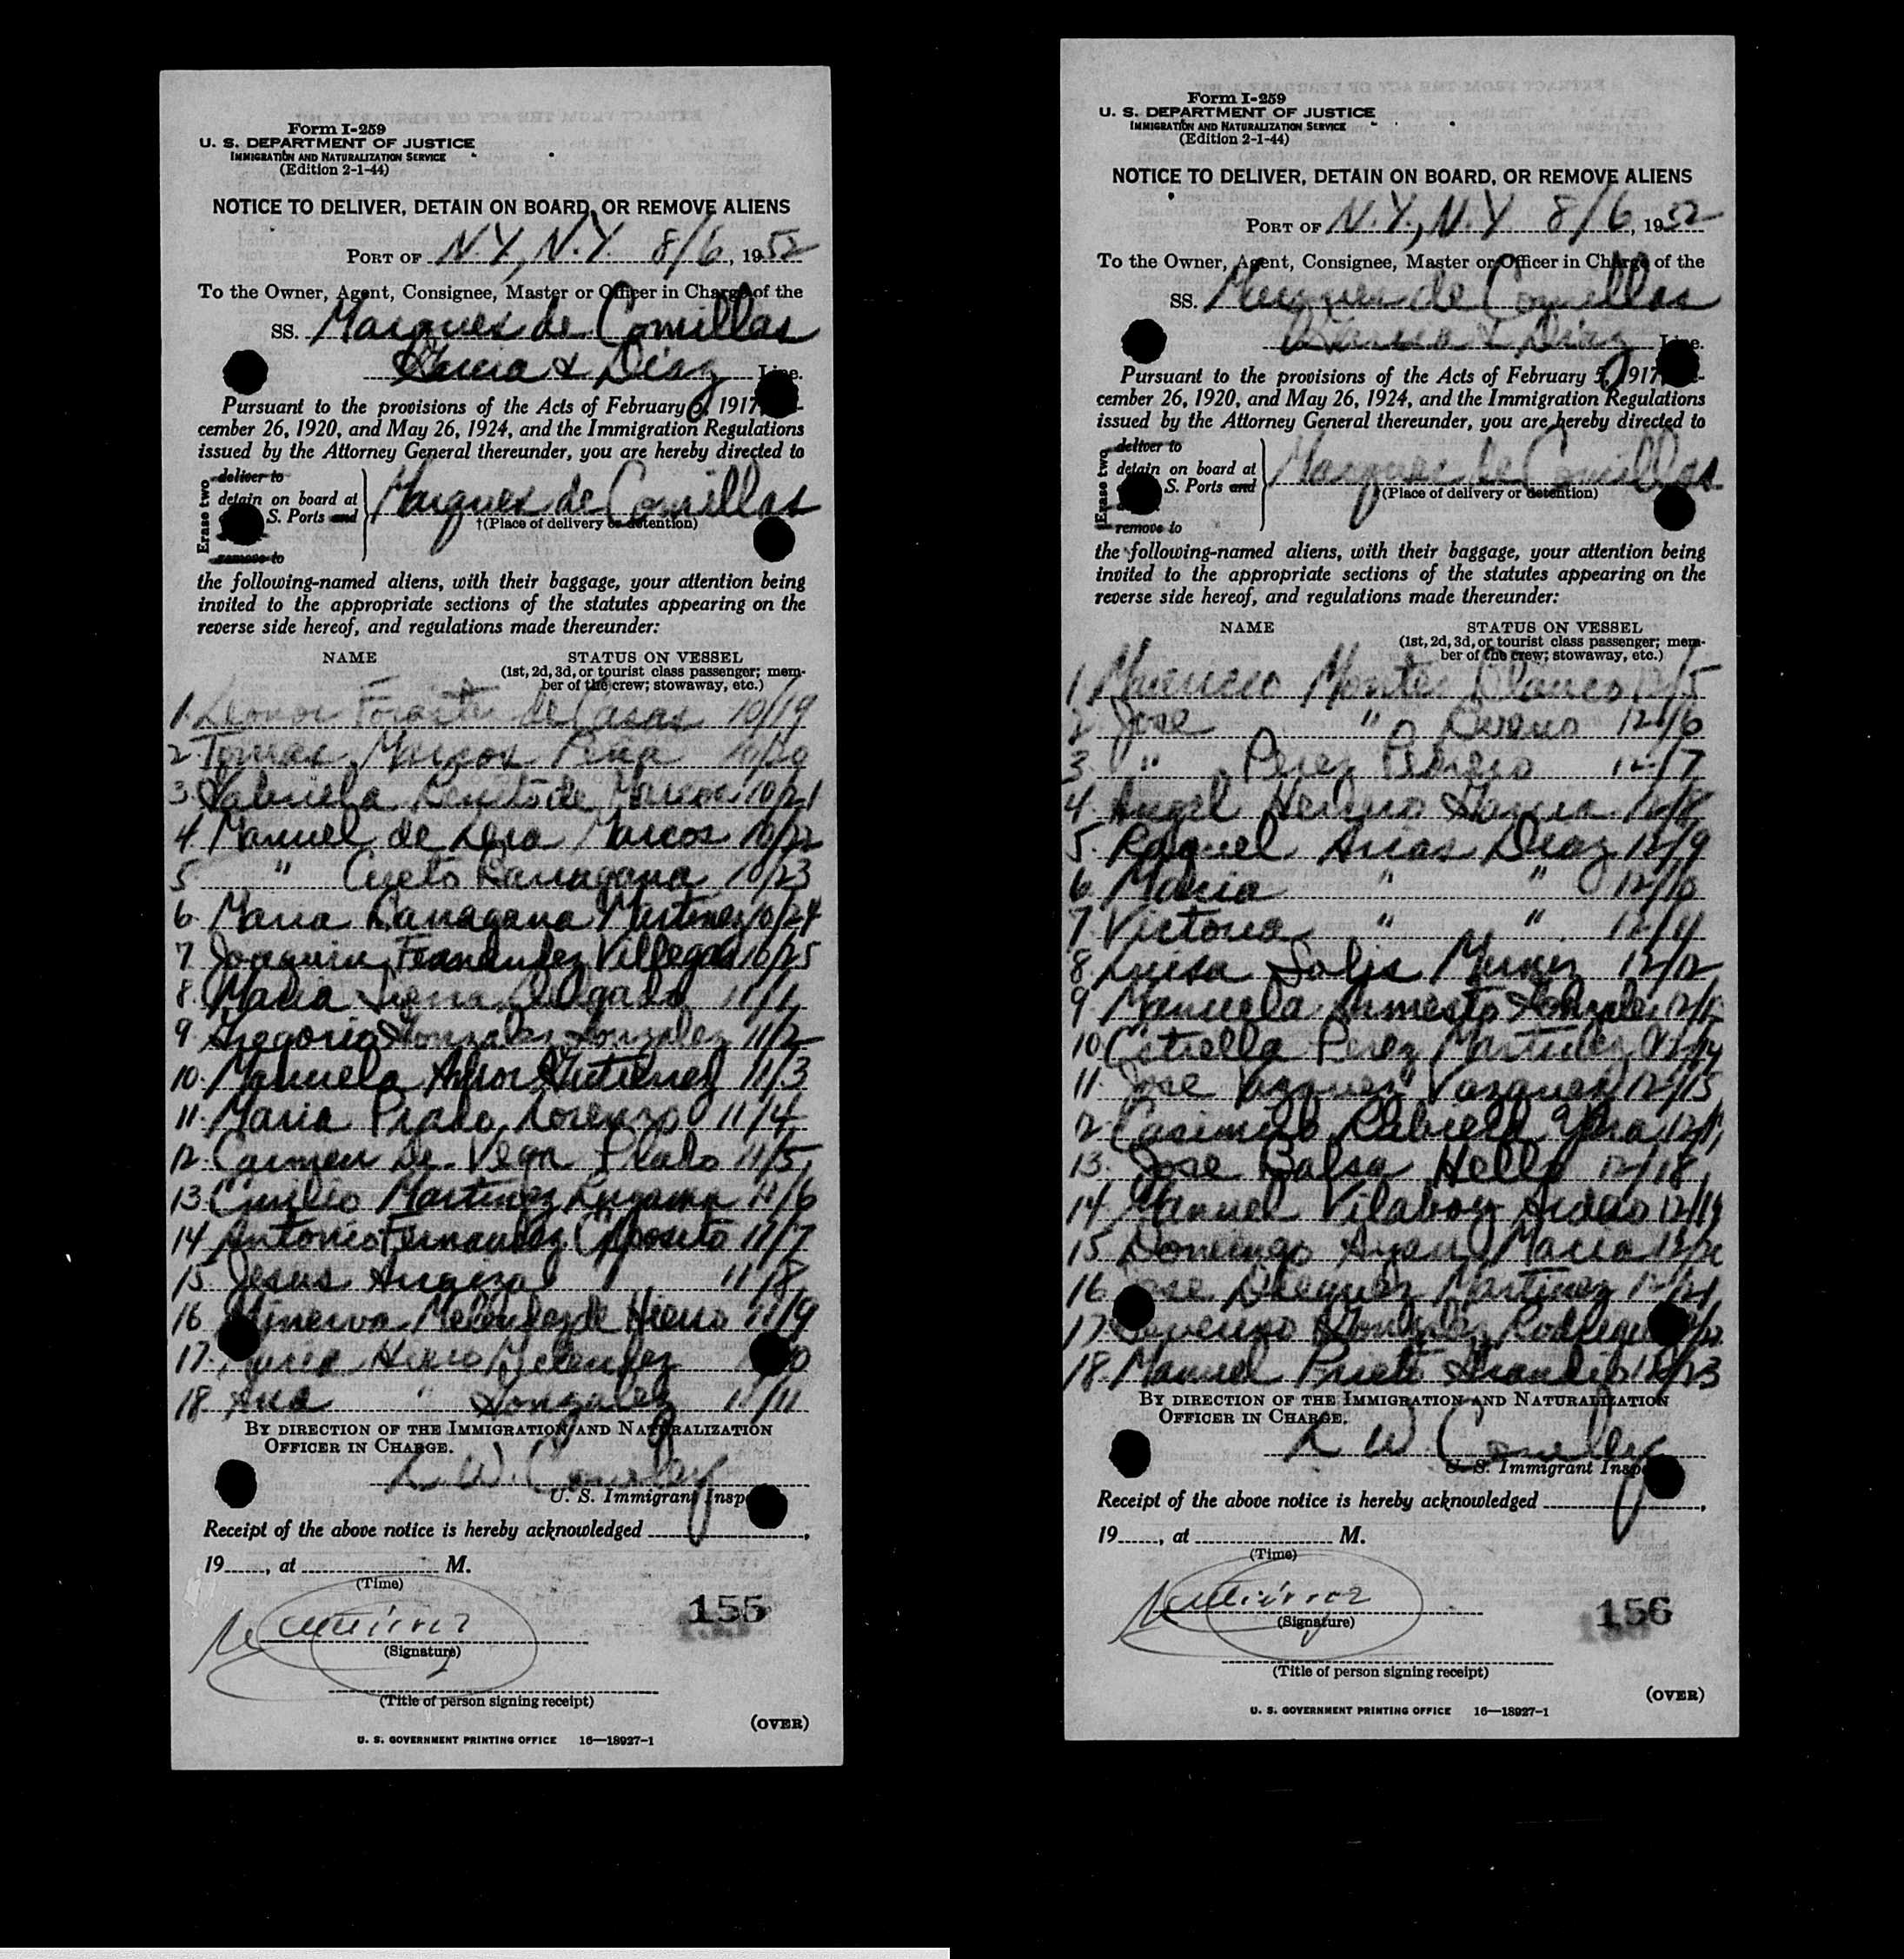 Form I-259
U. S. DEPARTMENT OF JUSTICE
IMMIGRATION AND NATURALIZATION SERVICE
(Edition 2-1-44)
NOTICE TO DELIVER, DETAIN ON BOARD, OR REMOVE ALIENS
PORT OF N.Y., N.Y. 8/6, 1952
To the Owner, Agent, Consignee, Master or Officer in Charge of the
SS. Marques de Comillas
Garcia & Diaz Line.
Pursuant to the provisions of the Acts of February 5, 1917,
cember 26, 1920, and May 26, 1924, and the Immigration Regulations
issued by the Attorney General thereunder, you are hereby directed to
Erase two
deliver to
detain on board at
S. Ports and
remove to
Marques de Comillas
†(Place of delivery or detention)
the following-named aliens, with their baggage, your attention being
invited to the appropriate sections of the statutes appearing on the
reverse side hereof, and regulations made thereunder:
NAME STATUS ON VESSEL
(1st, 2d, 3d, or tourist class passenger; mem-
ber of the crew; stowaway, etc.)
1. Leonor de Casas 10/19
2. Tomas Marcos Peña 10/20
3. Gabriela de Marcos 10/21
4. Manuel de Marcos 10/22
5 " Cueto Larragana 10/23
6. Maria Larragana Martinez 10/24
7 Joaquin Fernandez Villegas 10/25
8. Maria 11/1
9 Gregoria Gonzalez Gonzalez 11/2
10. Manuela Gutierrez 11/3
11. Maria Prado Lorenzo 11/4
12. Carmen de Vega Prado 11/5
13 Emilio Martinez 11/6
14 Antonio Fernandez Exposito 11/7
15. Jesus 11/8
16 Minerva Melendez de Hierro 11/9
17. Hierro Melendez
18 Ana " Gonzalez 11/11
BY DIRECTION OF THE IMMIGRATION AND NATURALIZATION
OFFICER IN CHARGE.
L. W. Conelly
U. S. Immigrant Insp
Receipt of the above notice is hereby acknowledged ,
19 , at M.
(Time)
Gutierrez
(Signature)
155
(Title of person signing receipt)
(OVER)
U. S. GOVERNMENT PRINTING OFFICE 16—18927-1
Form I-259
U. S. DEPARTMENT OF JUSTICE
IMMIGRATION AND NATURALIZATION SERVICE
(Edition 2-1-44)
NOTICE TO DELIVER, DETAIN ON BOARD, OR REMOVE ALIENS
PORT OF N.Y., N.Y. 8/6, 1952
To the Owner, Agent, Consignee, Master or Officer in Charge of the
SS. Marques de Comillas
Garcia & Diaz Line.
Pursuant to the provisions of the Acts of February 5, 1917,
cember 26, 1920, and May 26, 1924, and the Immigration Regulations
issued by the Attorney General thereunder, you are hereby directed to
Erase two
deliver to
detain on board at
S. Ports and
remove to
Marques de Comillas
†(Place of delivery or detention)
the following-named aliens, with their baggage, your attention being
invited to the appropriate sections of the statutes appearing on the
reverse side hereof, and regulations made thereunder:
NAME STATUS ON VESSEL
(1st, 2d, 3d, or tourist class passenger; mem-
ber of the crew; stowaway, etc.)
1 Montes Blanco 12/5
2. Jose " 12/6
3. " Perez 12/7
4. Angel Herrero Garcia 12/8
5. Raquel Arias Diaz 12/9
6. Maria " " 12/10
7 Victoria " " 12/11
8. Luisa Solis 12/12
9. Manuela Armesto Gonzalez
10 Estrella Perez Martinez 12/14
11. Jose Vazquez Vazquez 12/15
12 Casimiro
13. Jose Balsa 12/18
14. Manuel Vilaboy 12/19
15 Domingo Maria
16. Jose Dieguez Martinez 12/21
17 Severino Gonzalez Rodriguez
18. Manuel Prieto 12/23
BY DIRECTION OF THE IMMIGRATION AND NATURALIZATION
OFFICER IN CHARGE.
L W. Conelly
U. S. Immigrant Inspe
Receipt of the above notice is hereby acknowledged ,
19 , at M.
(Time)
Gutierrez
(Signature)
156
(Title of person signing receipt)
(OVER)
U. S. GOVERNMENT PRINTING OFFICE 16—18927-1